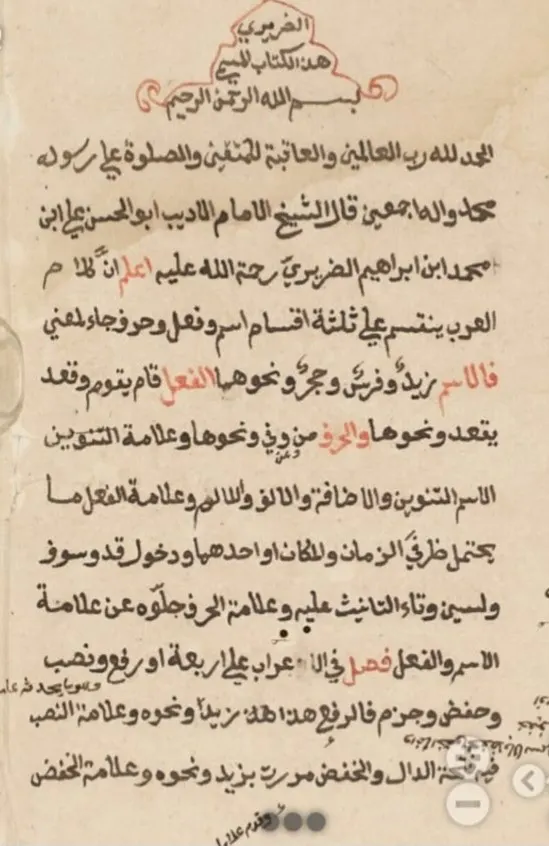 الضريري
هذا الكتاب المسمى
بسم الله الرحمن الرحيم
الحمد لله رب العالمين والعاقبة للمتقين والصلوة على رسوله
محمد واله اجمعين قال الشيخ الامام الاديب ابو الحسن على ابن
محمد ابن ابراهيم الضريري رحمة الله عليه اعلم ان كلام
العرب ينقسم على ثلثة اقسام اسم وفعل وحرف جاء لمعنى
فالاسم زيد وفرس وحجر ونحوها الفعل قام يقوم وقعد
يقعد ونحوها والحرف من وفي ونحوها وعلامة التنوين
وعن
الاسم التنوين والاضافة والالف واللام وعلامة الفعل ما
يحتمل ظرفي الزمان والمكان او احدهما ودخول قد وسوف
ولسين وتاء التانيث عليه وعلامة الحرف خلوه عن علامة
الاسم والفعل فصل في الاعراب على اربعة او رفع ونصب
وحفض وجزم فالرفع هذا زيد ونحوه وعلامة النصب
فيه فتحة الدال والخفض مررت بزيد ونحوه وعلامة الخفض